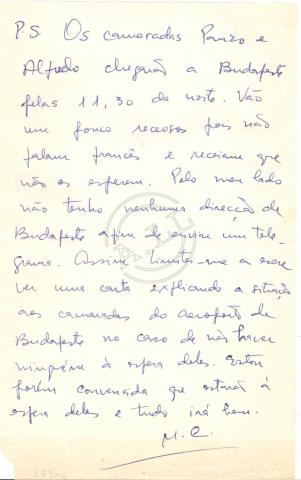 P.S. Os camaradas Panzo e
Alfredo chegarão a Budapeste
pelas 11,30 da noite. Vão
um pouco receosos pois não
falam francês e receiam que
não os esperem. Pelo meu lado
não tenho nenhuma direcção de
Budapeste afim de enviar um tele-
grama. Assim limitei-me a escre
ver uma carta explicando a situação
aos camaradas do aeroporto de
Budapeste no caso de não haver
ninguém à espera deles. Estou
porém convencida que estarão à
espera deles e tudo irá bem.
M. C.